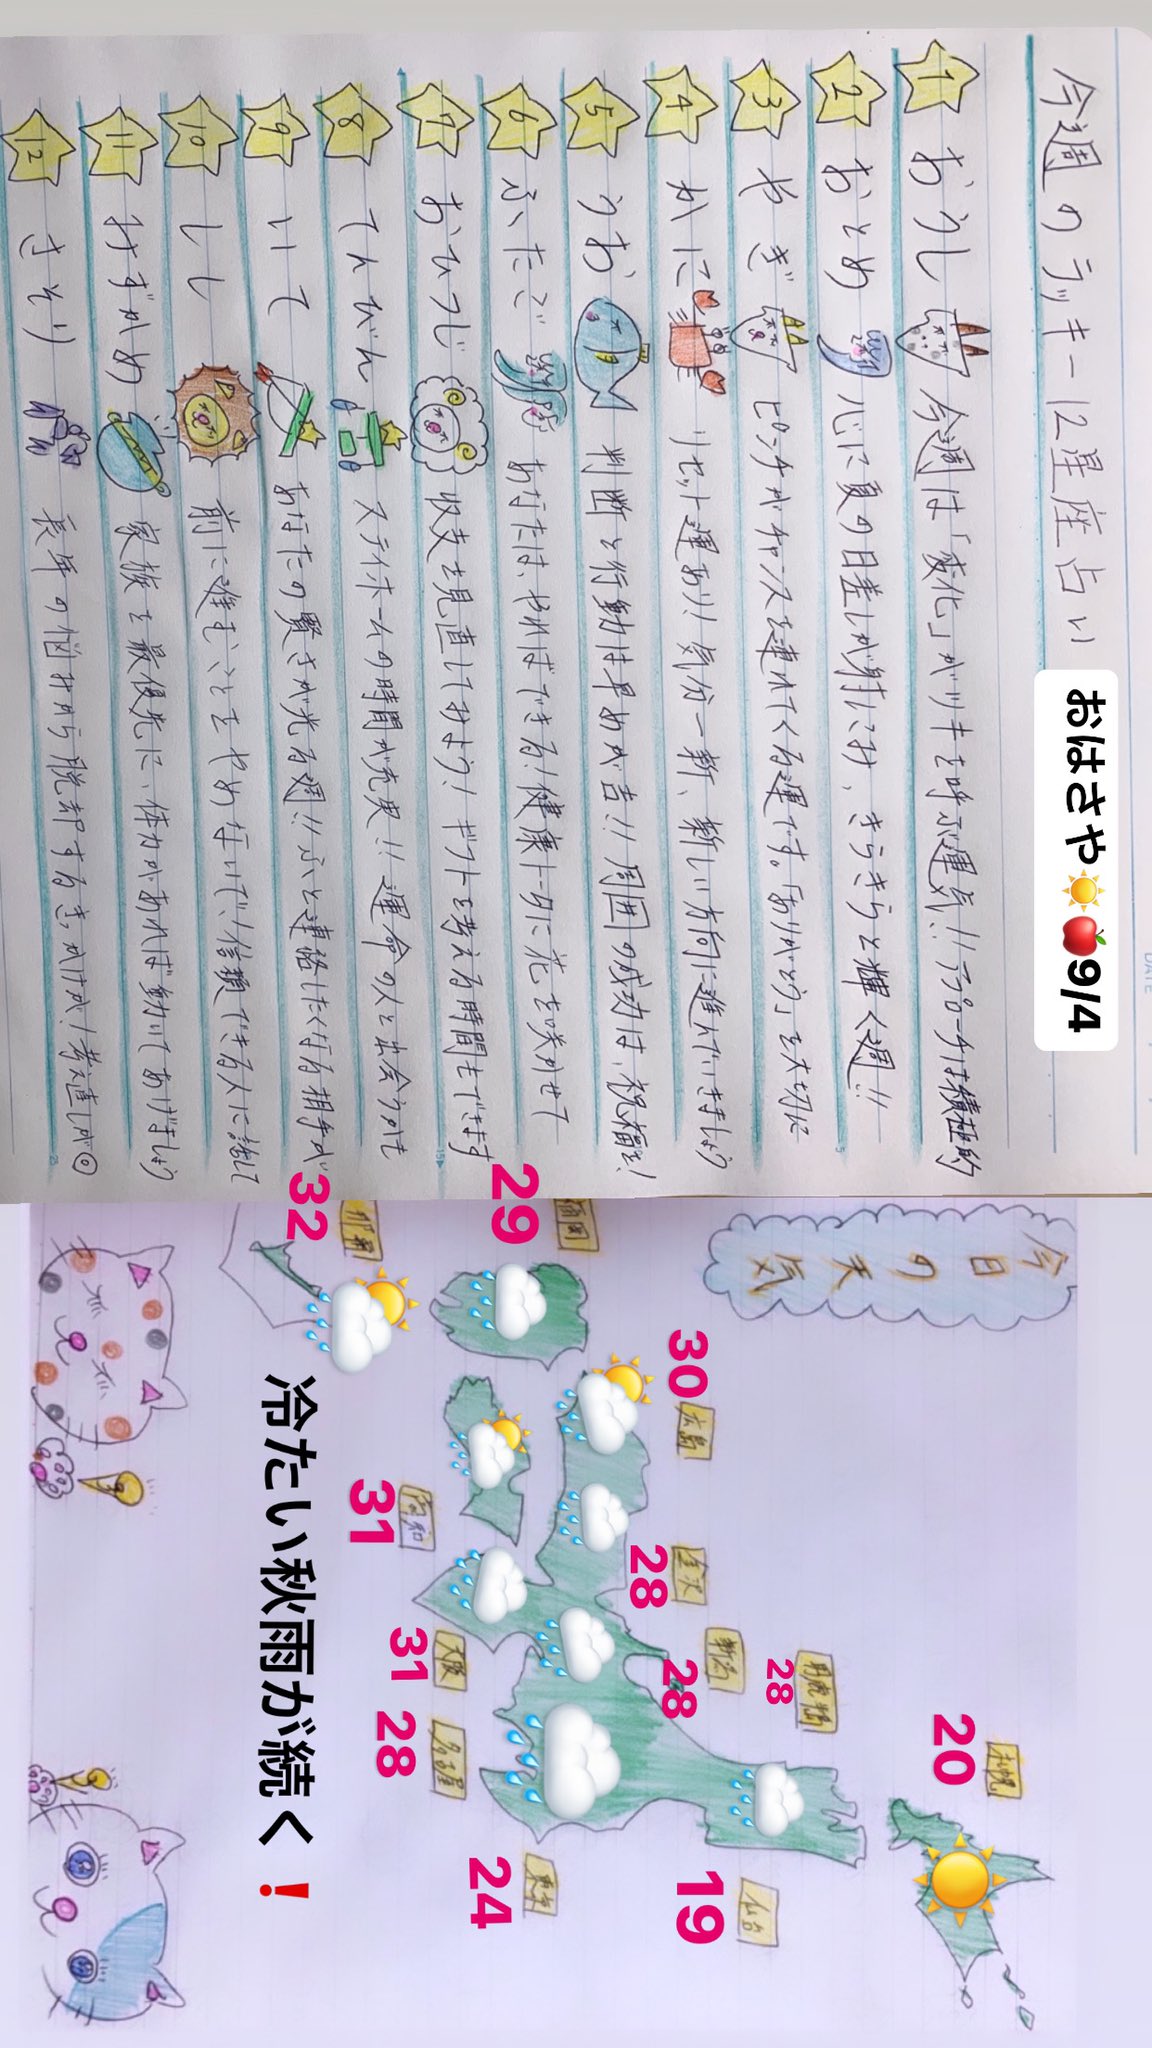 今週のラッキー12星座占い
おはさや☀️🍎9/4
1 おうし 今週は「変化」がツキを呼ぶ運気!!アプローチは積極的
2 おとめ 心に夏の日差しが射こみ、きらきらと輝く週!!
3 やぎ ピンチがチャンスを連れてくる運です。「ありがとう」を大切に
4 かに リセット運あり!気分一新、新しい方向に進んでいきましょう
5 うお 判断と行動は早めが吉!!周囲の成功は、祝福を!
6 ふたご あなたは、やればできる!健康トークに花を咲かせて
7 おひつじ 収支を見直してみよう!ギフトを考える時間もできます
8 てんびん ステイホームの時間が充実!!運命の人と出会うかも
9 いて あなたの賢さが光る週!!ふと連絡したくなる相手が
10 しし 前に進むことをやめないで!信頼できる人に話して
11 みずがめ 家族を最優先に、体力があれば動いてあげましょう
12 さそり 長年の悩みから脱却するきっかけが!考え直しが◎
今日の天気
札幌
20
28
新潟
28
金沢
28
広島
30
福岡
29
仙台
19
東京
24
名古屋
28
大阪
31
高知
31
那覇
32
冷たい秋雨が続く❗